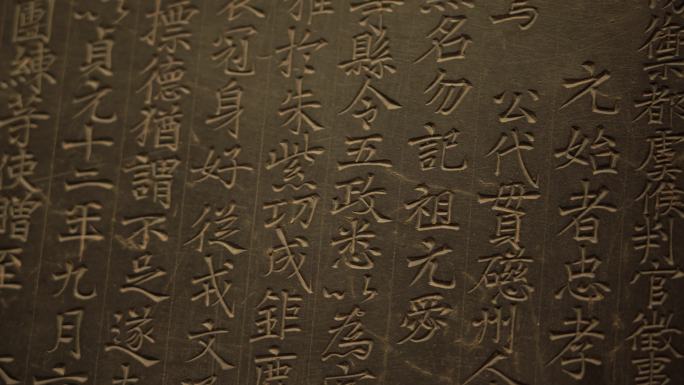 都虞候判官徵事
元始者忠孝
公代貫磁州
名勿記祖元
縣令五政悉以為
於朱紫功成鉅鹿
冠身好從戎文
標德猶謂不足遂
以貞元十二年九月
團練等使贈至